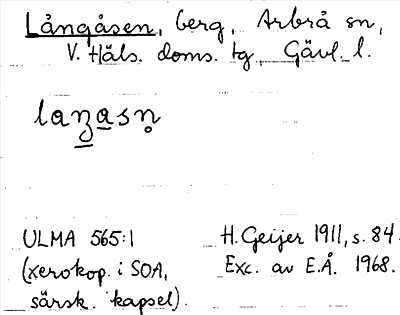 Långåsen, berg, Arbrå sn,
V. Häls. doms. tg, Gävl. l.
laŋasn̥
ULMA 565:1
(xerokop. i SOA,
särsk. kapsel).
H. Geijer 1911, s. 84.
Exc. av E.Å. 1968.